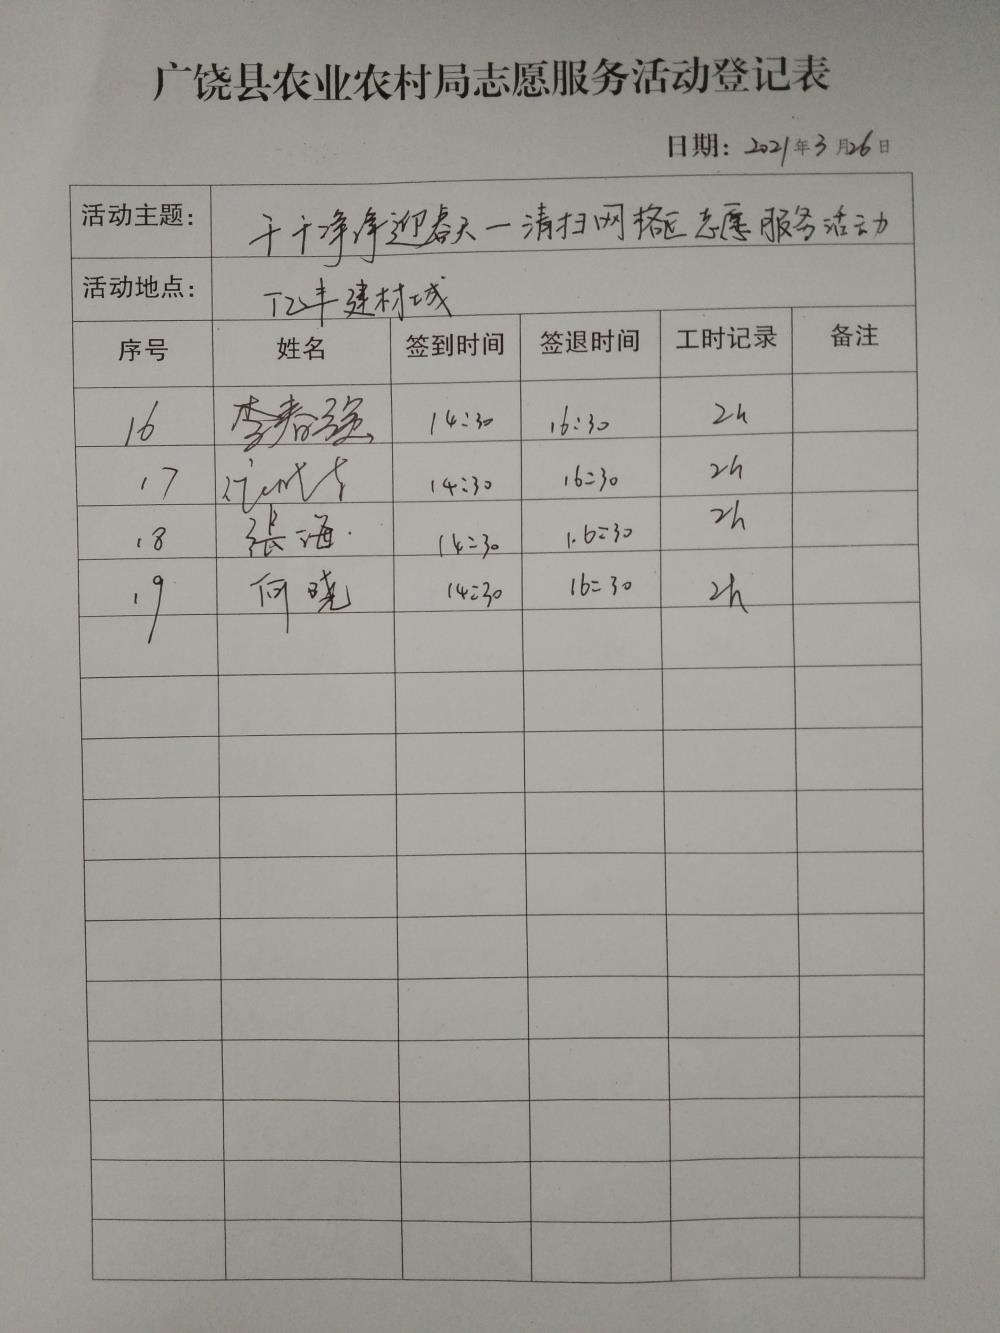 广饶县农业农村局志愿服务活动登记表
日期：2021年3月26日
活动主题： 干干净净迎春天一清扫网格区志愿服务活动
活动地点： 亿丰建材城
序号 姓名 签到时间 签退时间 工时记录 备注
16 李春强 14:30 16:30 2h
17 14:30 16:30 2h
18 张海 14:30 16:30 2h
19 何晓 14:30 16:30 2h